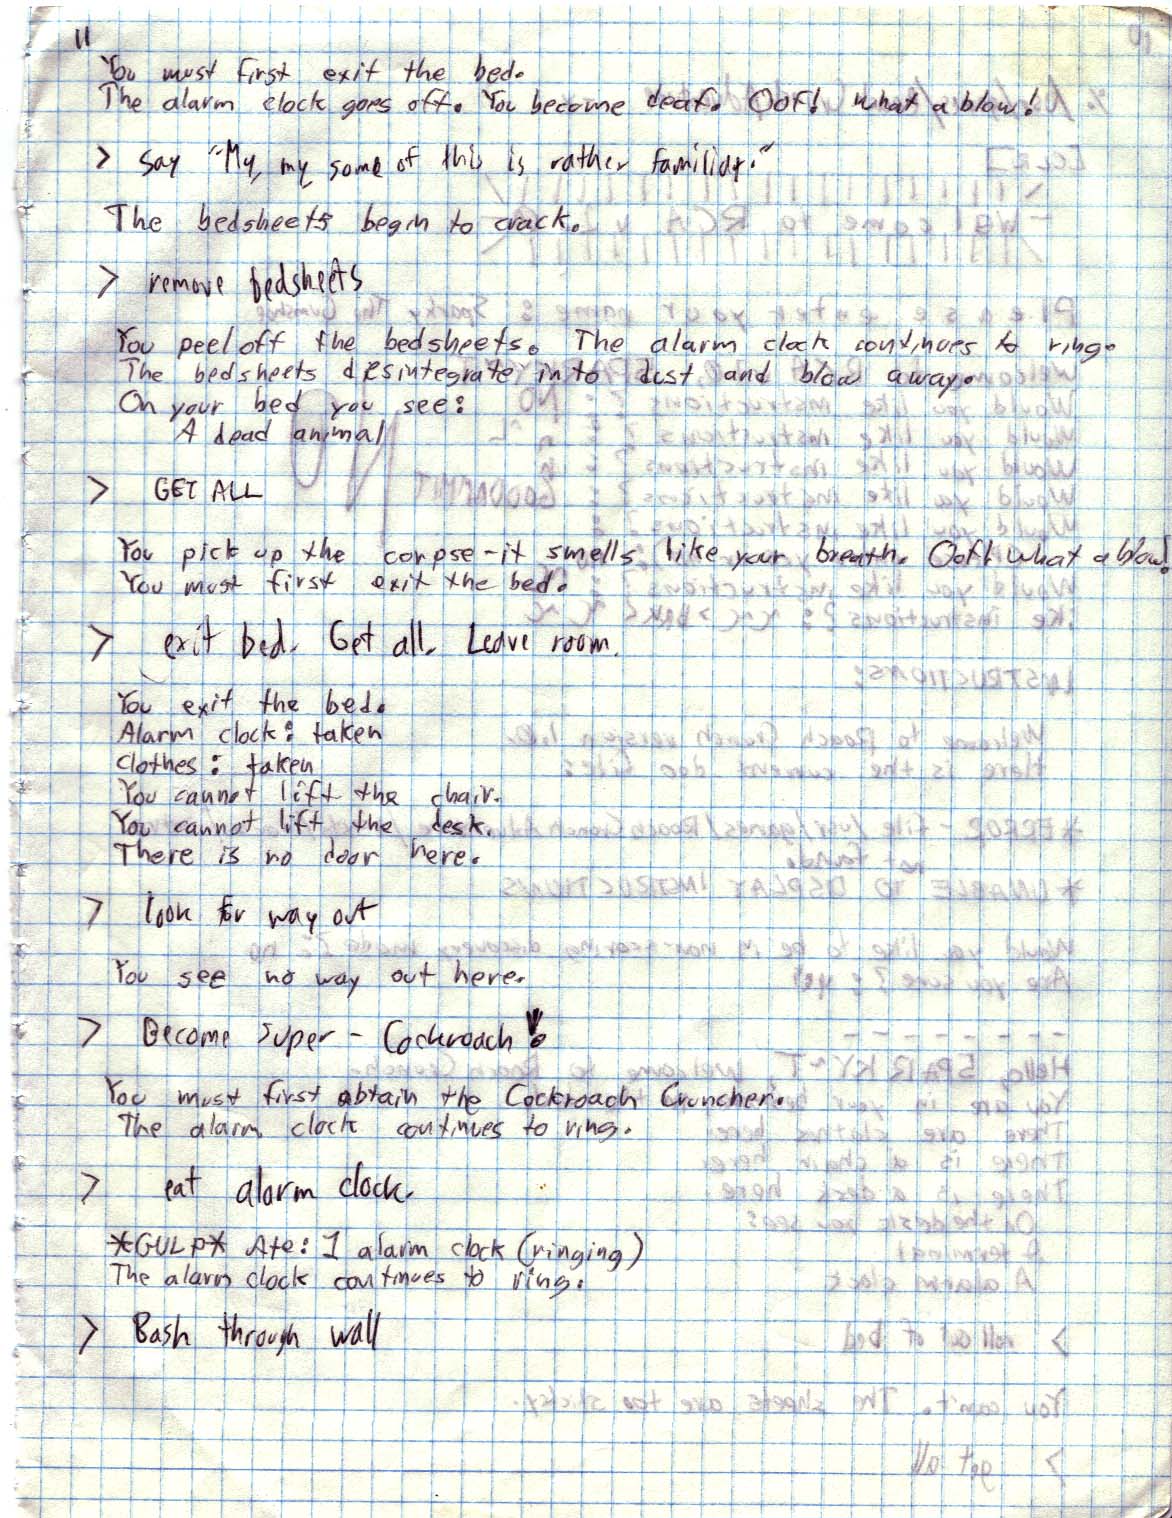 11
You must first exit the bed.
The alarm clock goes off. You become deaf. Oof! what a blow!
> say "My, my some of this is rather familiar."
The bedsheets begin to crack.
> remove bedsheets
You peel off the bedsheets. The alarm clock continues to ring.
The bedsheets disintegrate into dust and blow away.
On your bed you see:
A dead animal
> GET ALL
You pick up the corpse - it smells like your breath. Oof! what a blow!
You must first exit the bed.
> exit bed. Get all. Leave room.
You exit the bed.
Alarm clock: taken
clothes: taken
You cannot lift the chair.
You cannot lift the desk.
There is no door here.
> look for way out
You see no way out here.
> Become Super-Cockroach!
You must first obtain the Cockroach Cruncher.
The alarm clock continues to ring.
> eat alarm clock.
*GULP* Ate: 1 alarm clock (ringing)
The alarm clock continues to ring.
> Bash through wall